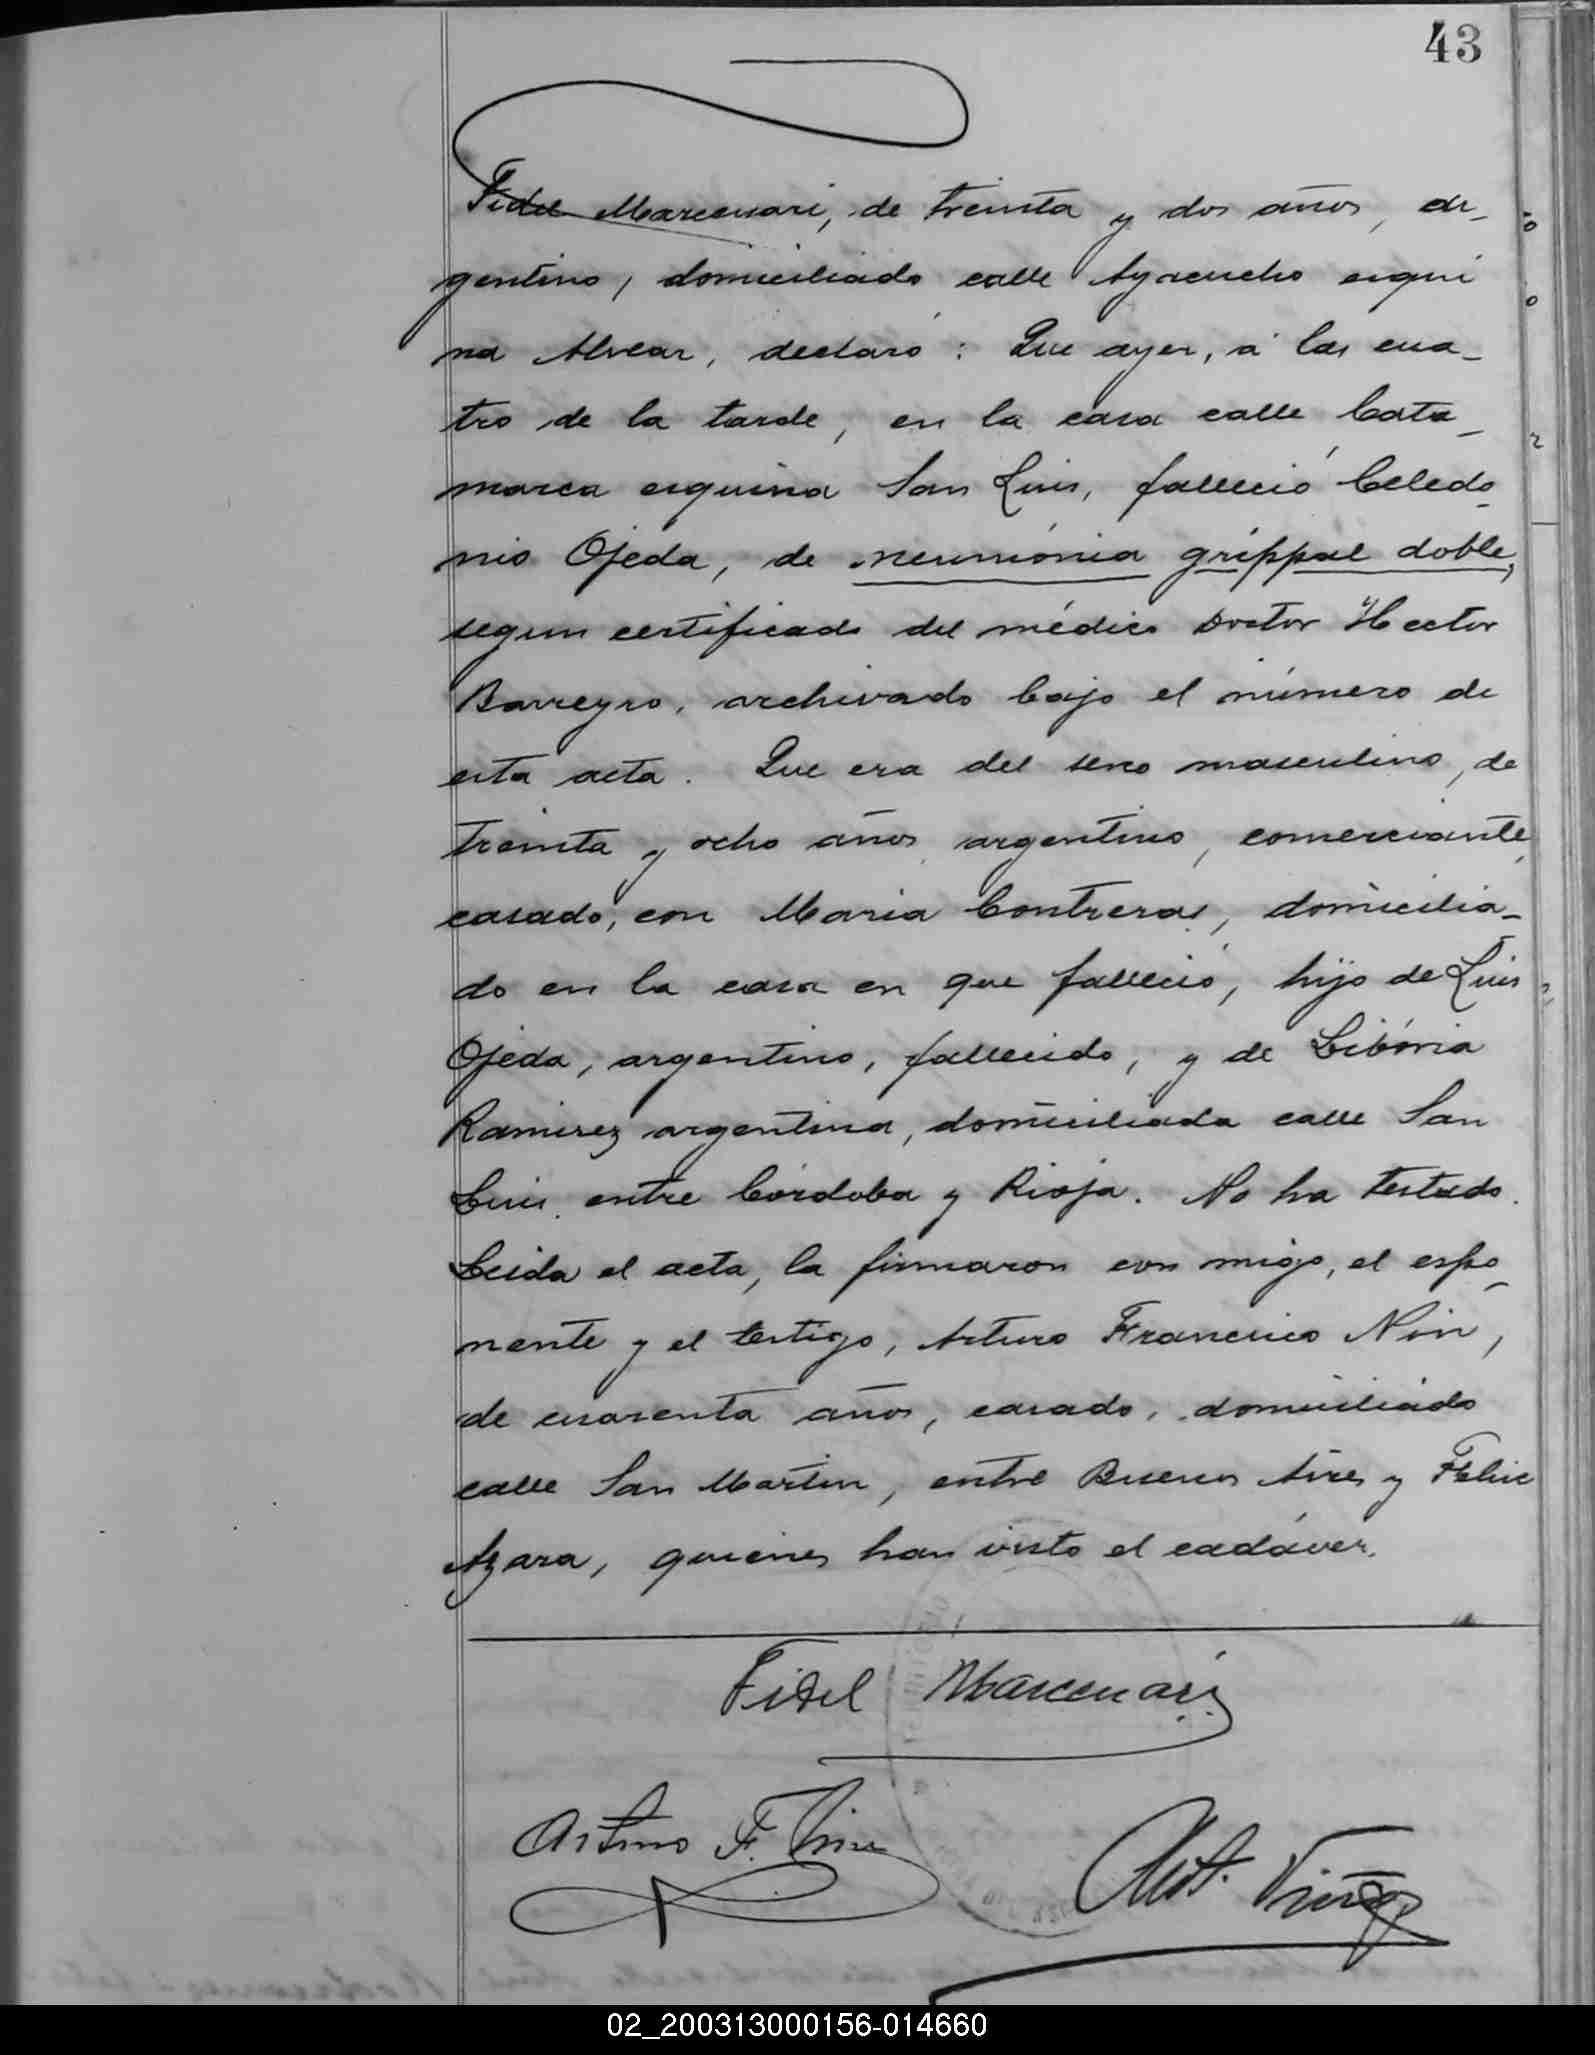 43
Fidel Marcenari, de treinta y dos años, ar-
gentino, domiciliado calle Ayacucho esqui
na Alvear, declaró: Que ayer, á las cua-
tro de la tarde, en la casa calle Cata-
marca esquina San Luis, falleció Celedo-
nio Ojeda, de neumónia grippal doble,
segun certificado del médico Doctor Hector
Barreyro, archivado bajo el número de
esta acta. Que era del sexo masculino, de
treinta y ocho años, argentino, comerciante,
casado, con Maria Contreras, domicilia-
do en la casa en que falleció, hijo de Luis
Ojeda, argentino, fallecido, y de Libória
Ramirez argentina, domiciliada calle San
Luis, entre Córdoba y Rioja. No ha testado.
Leida el acta, la firmaron con migo, el espo-
nente y el testigo, Arturo Francisco Nin,
de cuarenta años, casado, domiciliado
calle San Martin, entre Buenos Aires y Felix
Azara, quienes han visto el cadáver.
Fidel Marcenari
Arturo F. Nin
02_200313000156-014660